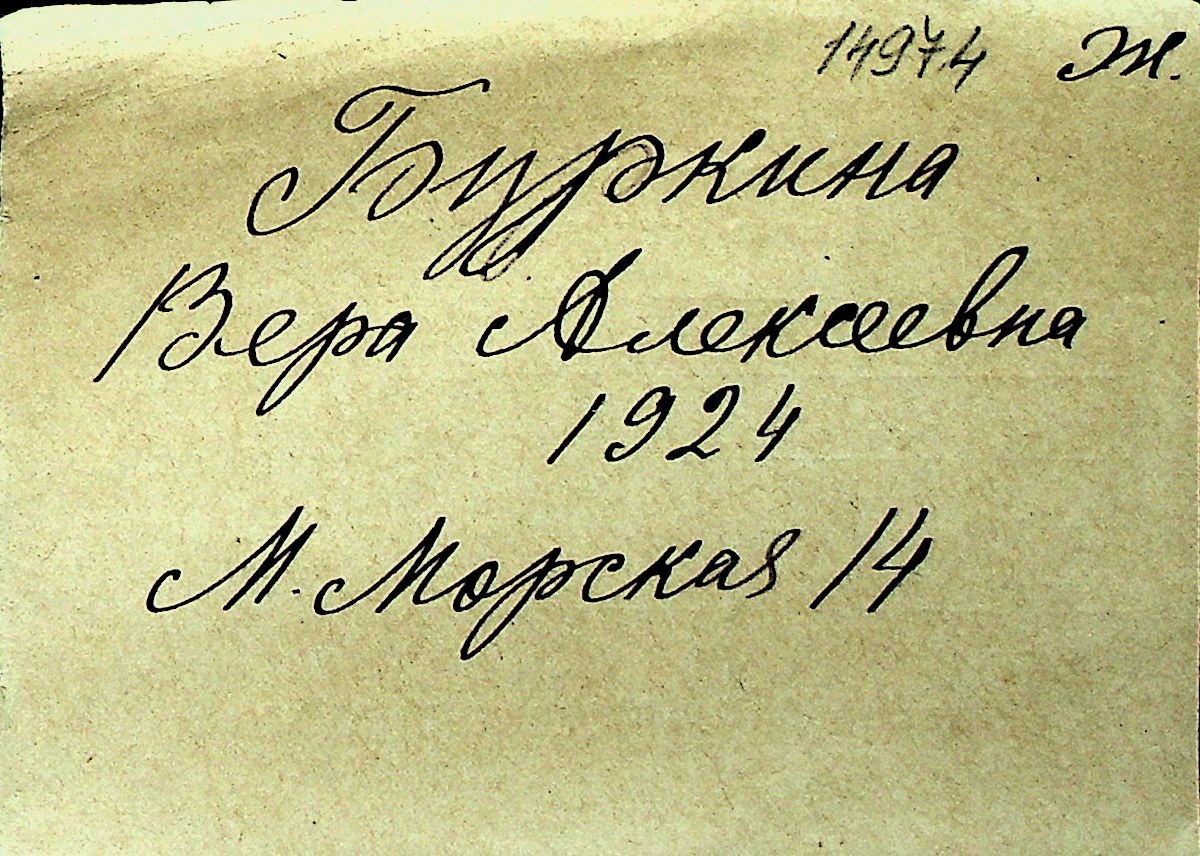 14974 Ж.
Буркина
Вера Алексеевна
1924
М. Морская 14